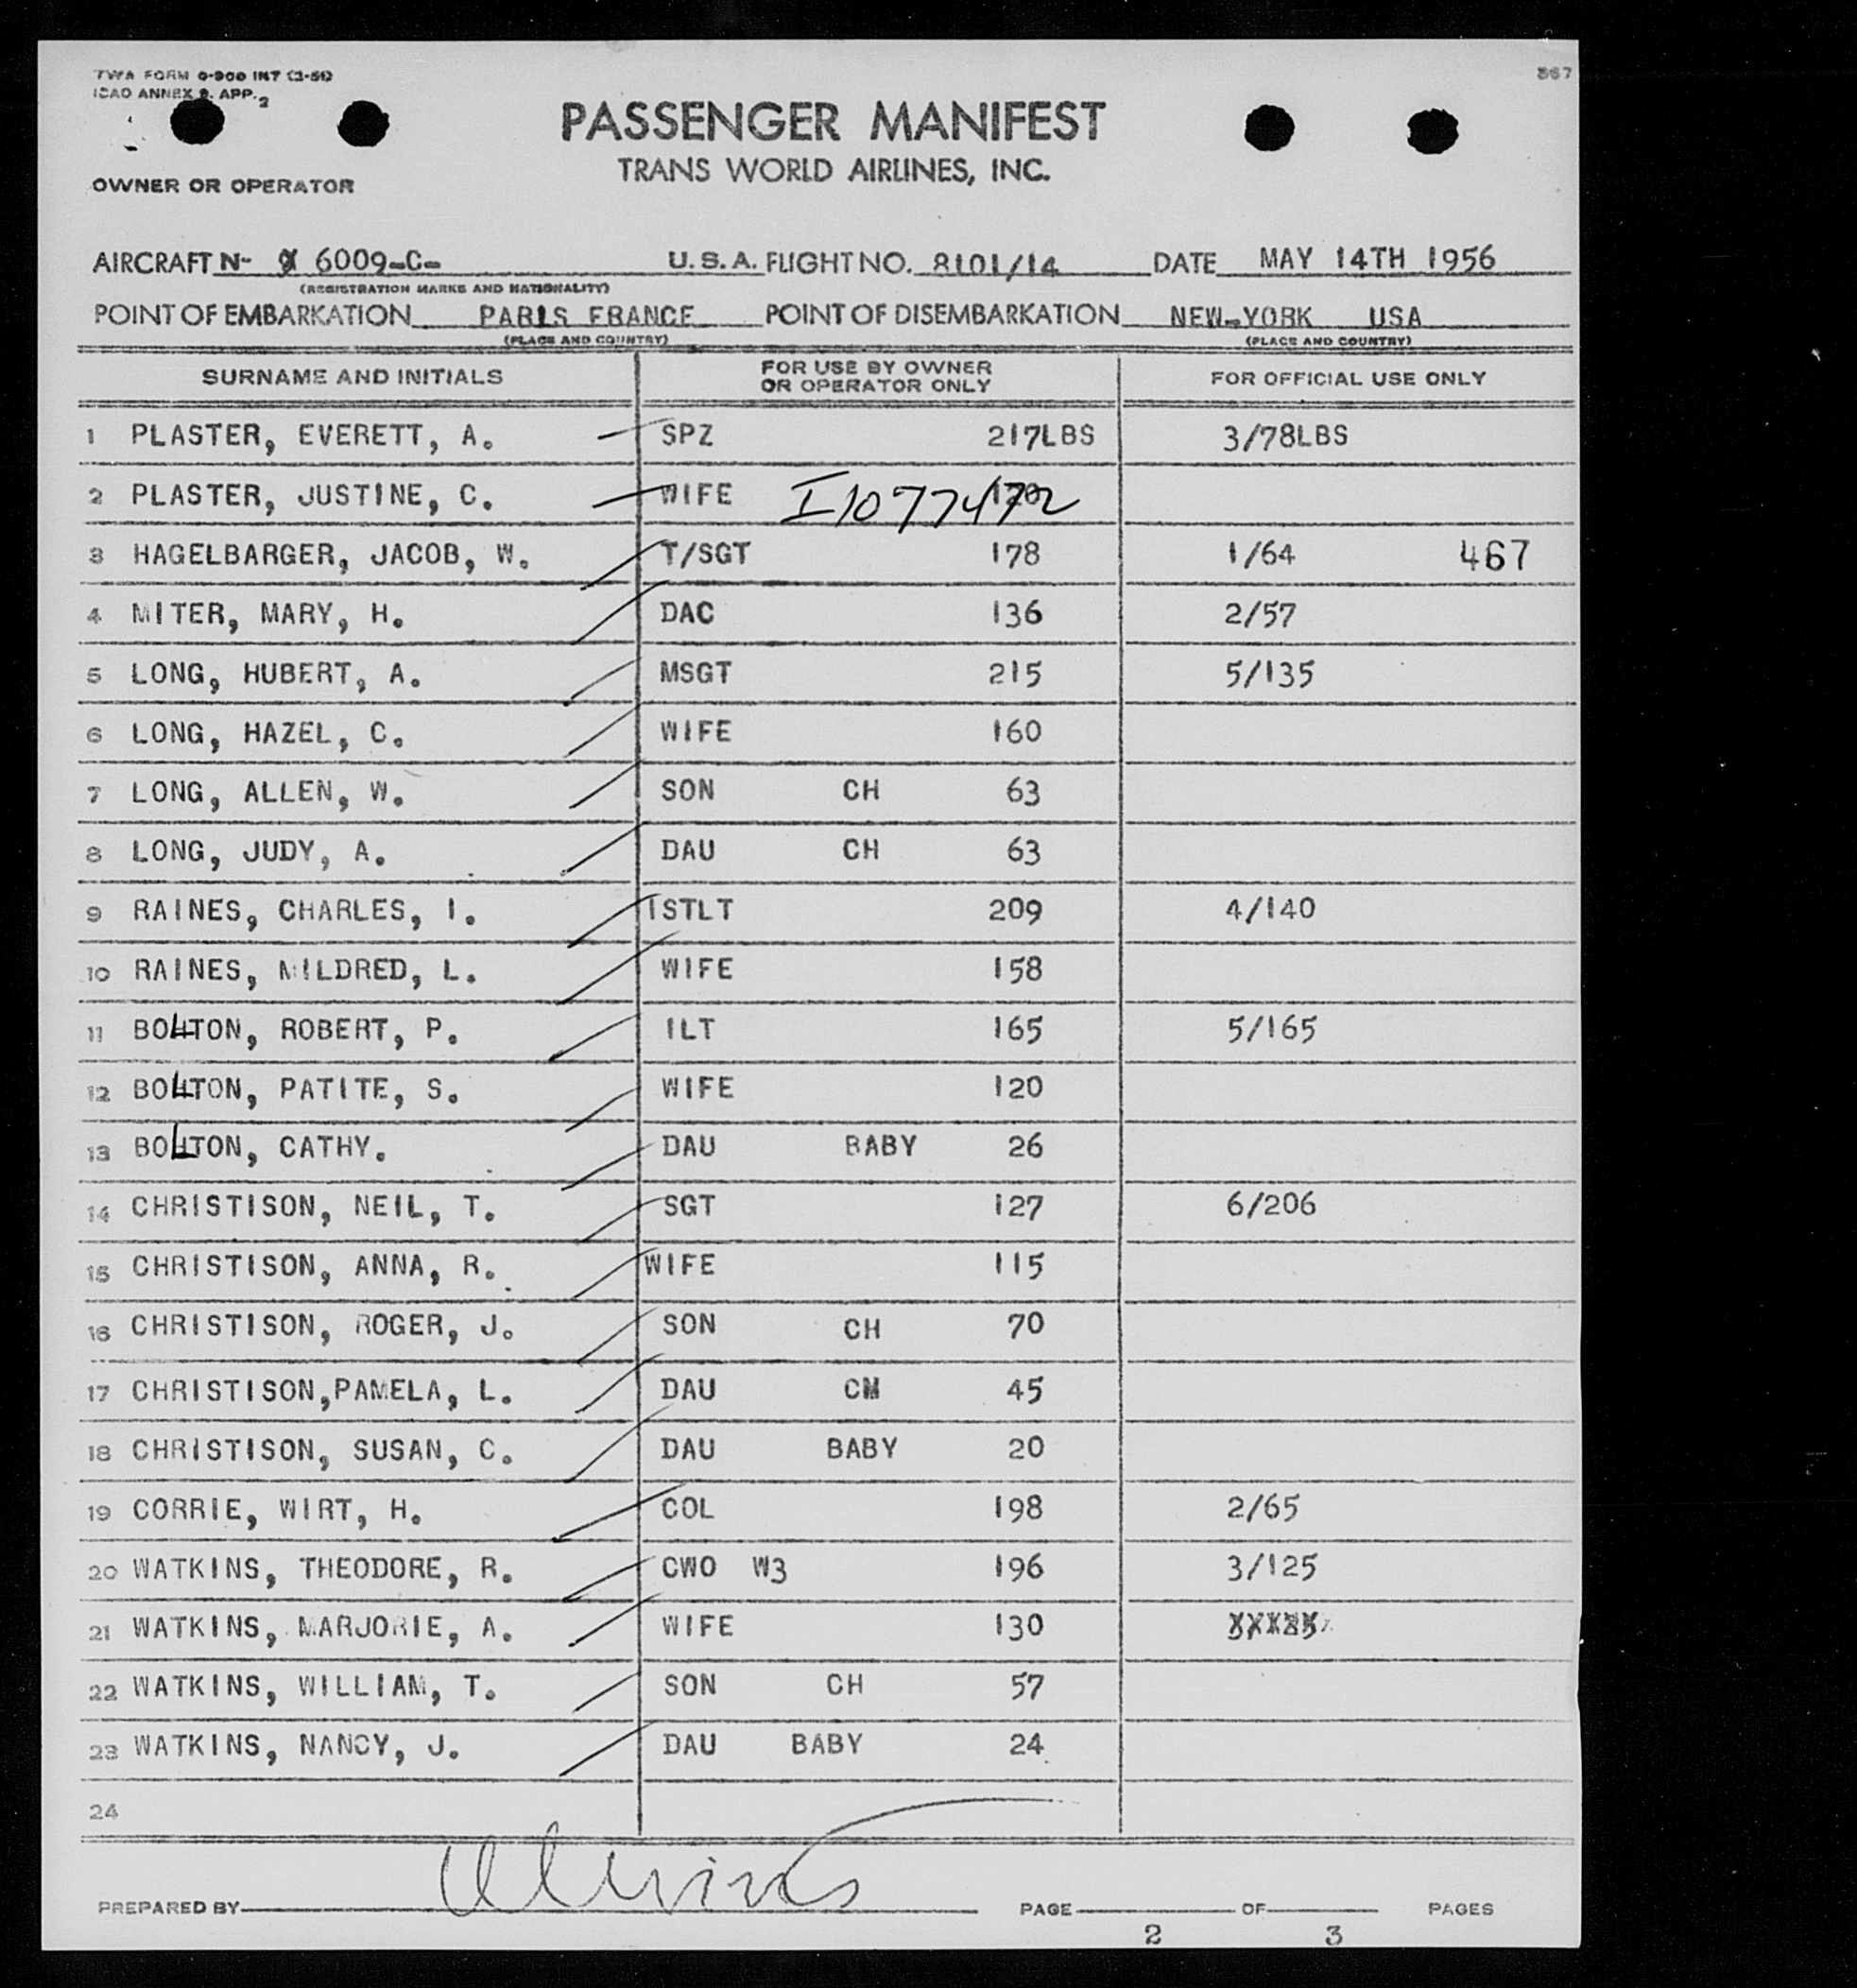 TWA FORM 0-900 INT (3-51)
ICAO ANNEX 9. APP. 2
367
PASSENGER MANIFEST
TRANS WORLD AIRLINES, INC.
OWNER OR OPERATOR
AIRCRAFT N- 6009-C- U.S.A. FLIGHT NO. 8101/14 DATE MAY 14TH 1956
(REGISTRATION MARKS AND NATIONALITY)
POINT OF EMBARKATION PARIS FRANCE POINT OF DISEMBARKATION NEW-YORK USA
(PLACE AND COUNTRY) (PLACE AND COUNTRY)
SURNAME AND INITIALS FOR USE BY OWNER OR OPERATOR ONLY FOR OFFICIAL USE ONLY
1 PLASTER, EVERETT, A. SPZ 217LBS 3/78LBS
2 PLASTER, JUSTINE, C. WIFE I1077472
3 HAGELBARGER, JACOB, W. T/SGT 178 1/64 467
4 MITER, MARY, H. DAC 136 2/57
5 LONG, HUBERT, A. MSGT 215 5/135
6 LONG, HAZEL, C. WIFE 160
7 LONG, ALLEN, W. SON CH 63
8 LONG, JUDY, A. DAU CH 63
9 RAINES, CHARLES, I. 1STLT 209 4/140
10 RAINES, MILDRED, L. WIFE 158
11 BOLTON, ROBERT, P. 1LT 165 5/165
12 BOLTON, PATITE, S. WIFE 120
13 BOLTON, CATHY. DAU BABY 26
14 CHRISTISON, NEIL, T. SGT 127 6/206
15 CHRISTISON, ANNA, R. WIFE 115
16 CHRISTISON, ROGER, J. SON CH 70
17 CHRISTISON,PAMELA, L. DAU CH 45
18 CHRISTISON, SUSAN, C. DAU BABY 20
19 CORRIE, WIRT, H. COL 198 2/65
20 WATKINS, THEODORE, R. CWO W3 196 3/125
21 WATKINS, MARJORIE, A. WIFE 130
22 WATKINS, WILLIAM, T. SON CH 57
23 WATKINS, NANCY, J. DAU BABY 24
24
PREPARED BY PAGE 2 OF 3 PAGES